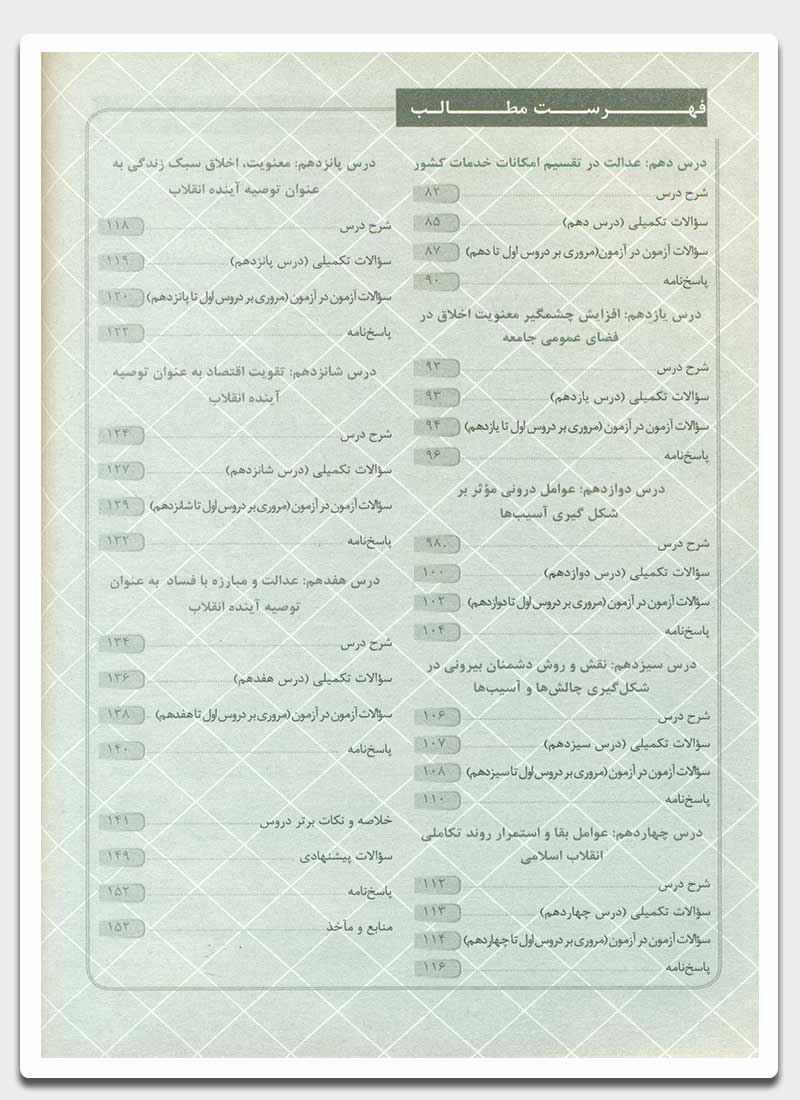 فهرست مطالب
درس دهم: عدالت در تقسیم امکانات خدمات کشور
شرح درس ۸۲
سؤالات تکمیلی (درس دهم) ۸۵
سؤالات آزمون در آزمون(مروری بر دروس اول تا دهم) ۸۷
پاسخ‌نامه ۹۰
درس یازدهم: افزایش چشمگیر معنویت اخلاق در
فضای عمومی جامعه
شرح درس ۹۲
سؤالات تکمیلی (درس یازدهم) ۹۳
سؤالات آزمون در آزمون (مروری بر دروس اول تا یازدهم) ۹۴
پاسخ‌نامه ۹۶
درس دوازدهم: عوامل درونی مؤثر بر
شکل گیری آسیب‌ها
شرح درس ۹۸
سؤالات تکمیلی (درس دوازدهم) ۱۰۰
سؤالات آزمون در آزمون (مروری بر دروس اول تا دوازدهم) ۱۰۲
پاسخ‌نامه ۱۰۴
درس سیزدهم: نقش و روش دشمنان بیرونی در
شکل‌گیری چالش‌ها و آسیب‌ها
شرح درس ۱۰۶
سؤالات تکمیلی (درس سیزدهم) ۱۰۷
سؤالات آزمون در آزمون (مروری بر دروس اول تا سیزدهم) ۱۰۸
پاسخ‌نامه ۱۱۰
درس چهاردهم: عوامل بقا و استمرار روند تکاملی
انقلاب اسلامی
شرح درس ۱۱۲
سؤالات تکمیلی (درس چهاردهم) ۱۱۳
سؤالات آزمون در آزمون (مروری بر دروس اول تا چهاردهم) ۱۱۴
پاسخ‌نامه ۱۱۶
درس پانزدهم: معنویت، اخلاق سبک زندگی به
عنوان توصیه آینده انقلاب
شرح درس ۱۱۸
سؤالات تکمیلی (درس پانزدهم) ۱۱۹
سؤالات آزمون در آزمون (مروری بر دروس اول تا پانزدهم) ۱۲۰
پاسخ‌نامه ۱۲۲
درس شانزدهم: تقویت اقتصاد به عنوان توصیه
آینده انقلاب
شرح درس ۱۲۴
سؤالات تکمیلی (درس شانزدهم) ۱۲۷
سؤالات آزمون در آزمون (مروری بر دروس اول تا شانزدهم) ۱۲۹
پاسخ‌نامه ۱۳۲
درس هفدهم: عدالت و مبارزه با فساد به عنوان
توصیه آینده انقلاب
شرح درس ۱۳۴
سؤالات تکمیلی (درس هفدهم) ۱۳۶
سؤالات آزمون در آزمون (مروری بر دروس اول تا هفدهم) ۱۳۸
پاسخ‌نامه ۱۴۰
خلاصه و نکات برتر دروس ۱۴۱
سؤالات پیشنهادی ۱۴۹
پاسخ‌نامه ۱۵۲
منابع و مآخذ ۱۵۲